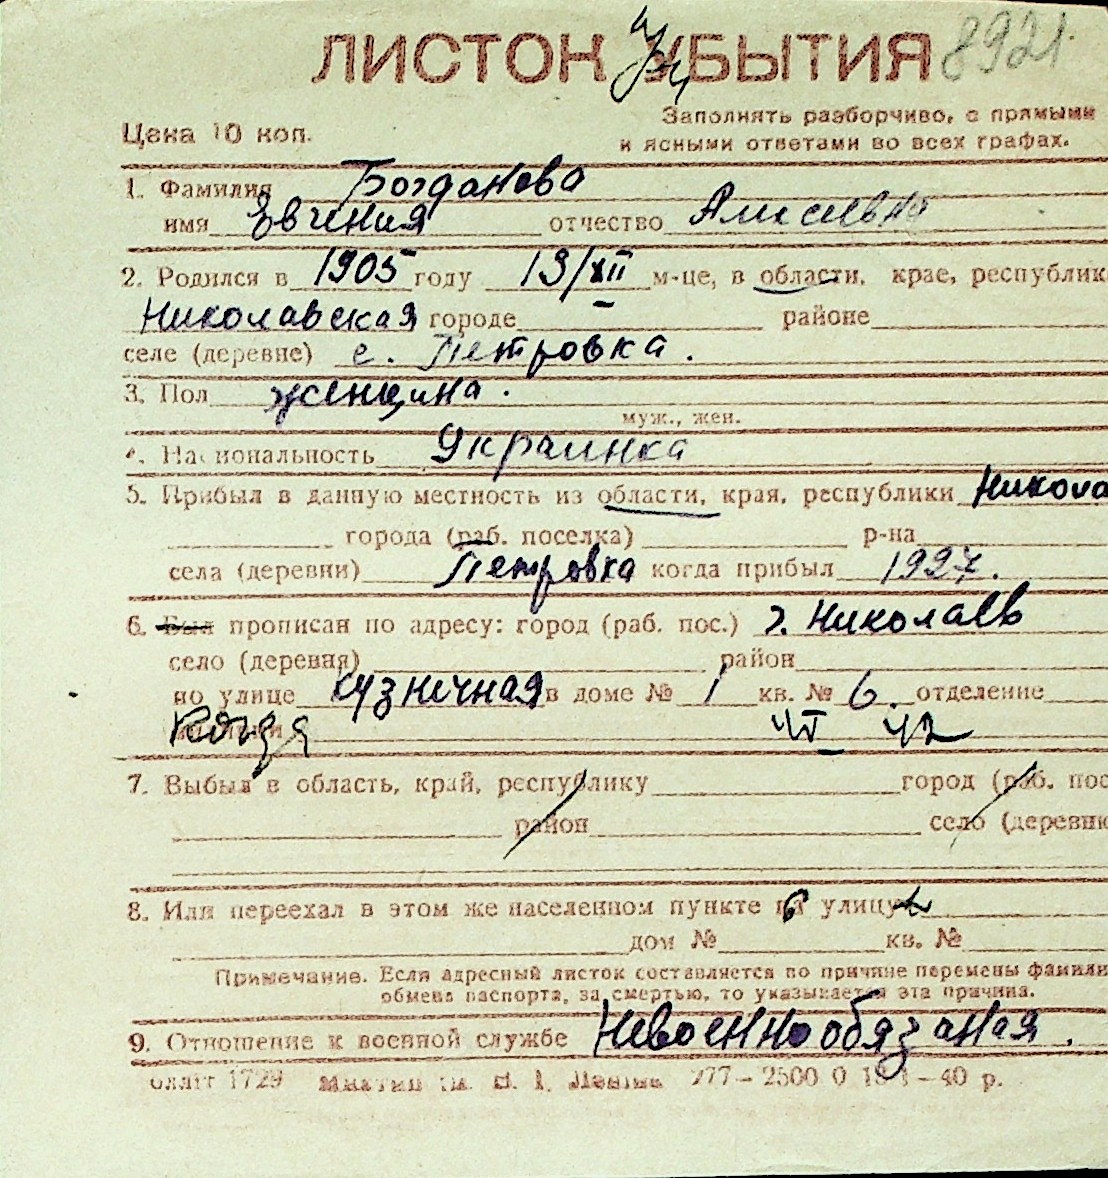 ЛИСТОК УБЫТИЯ 8921
Цена 10 коп.
Заполнять разборчиво, с прямыми
и ясными ответами во всех графах.
1. Фамилия Богданова
имя Евгения отчество
2. Родился в 1905 году 13/XII м-це, в области, крае, республик
Николавская городе районе
селе (деревне) с. Петровка.
3. Пол женщина.
муж., жен.
Национальность Украинка
5. Прибыл в данную местность из области, края, республики Никола
города (раб. поселка) р-на
села (деревни) Петровка когда прибыл 1927.
6. Был прописан по адресу: город (раб. пос.) г. Николаев
село (деревня) район
по улице Кузнечная в доме № 1 кв. № 6. отделение
Когда
7. Выбыл в область, край, республику город (раб. пос
район село (деревню
8. Или переехал в этом же населенном пункте на улицу
дом № кв. №
Примечание. Если адресный листок составляется по причине перемены фамили
обмена паспорта, за смертью, то указывается эта причина.
9. Отношение к военной службе Невоеннообязаная.
1729 777—2500 0 —40 р.